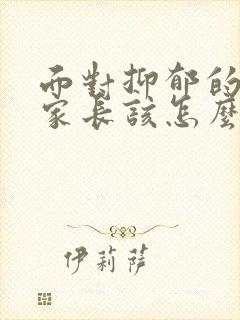 而對抑郁的
家長該怎麼
伊莉薩